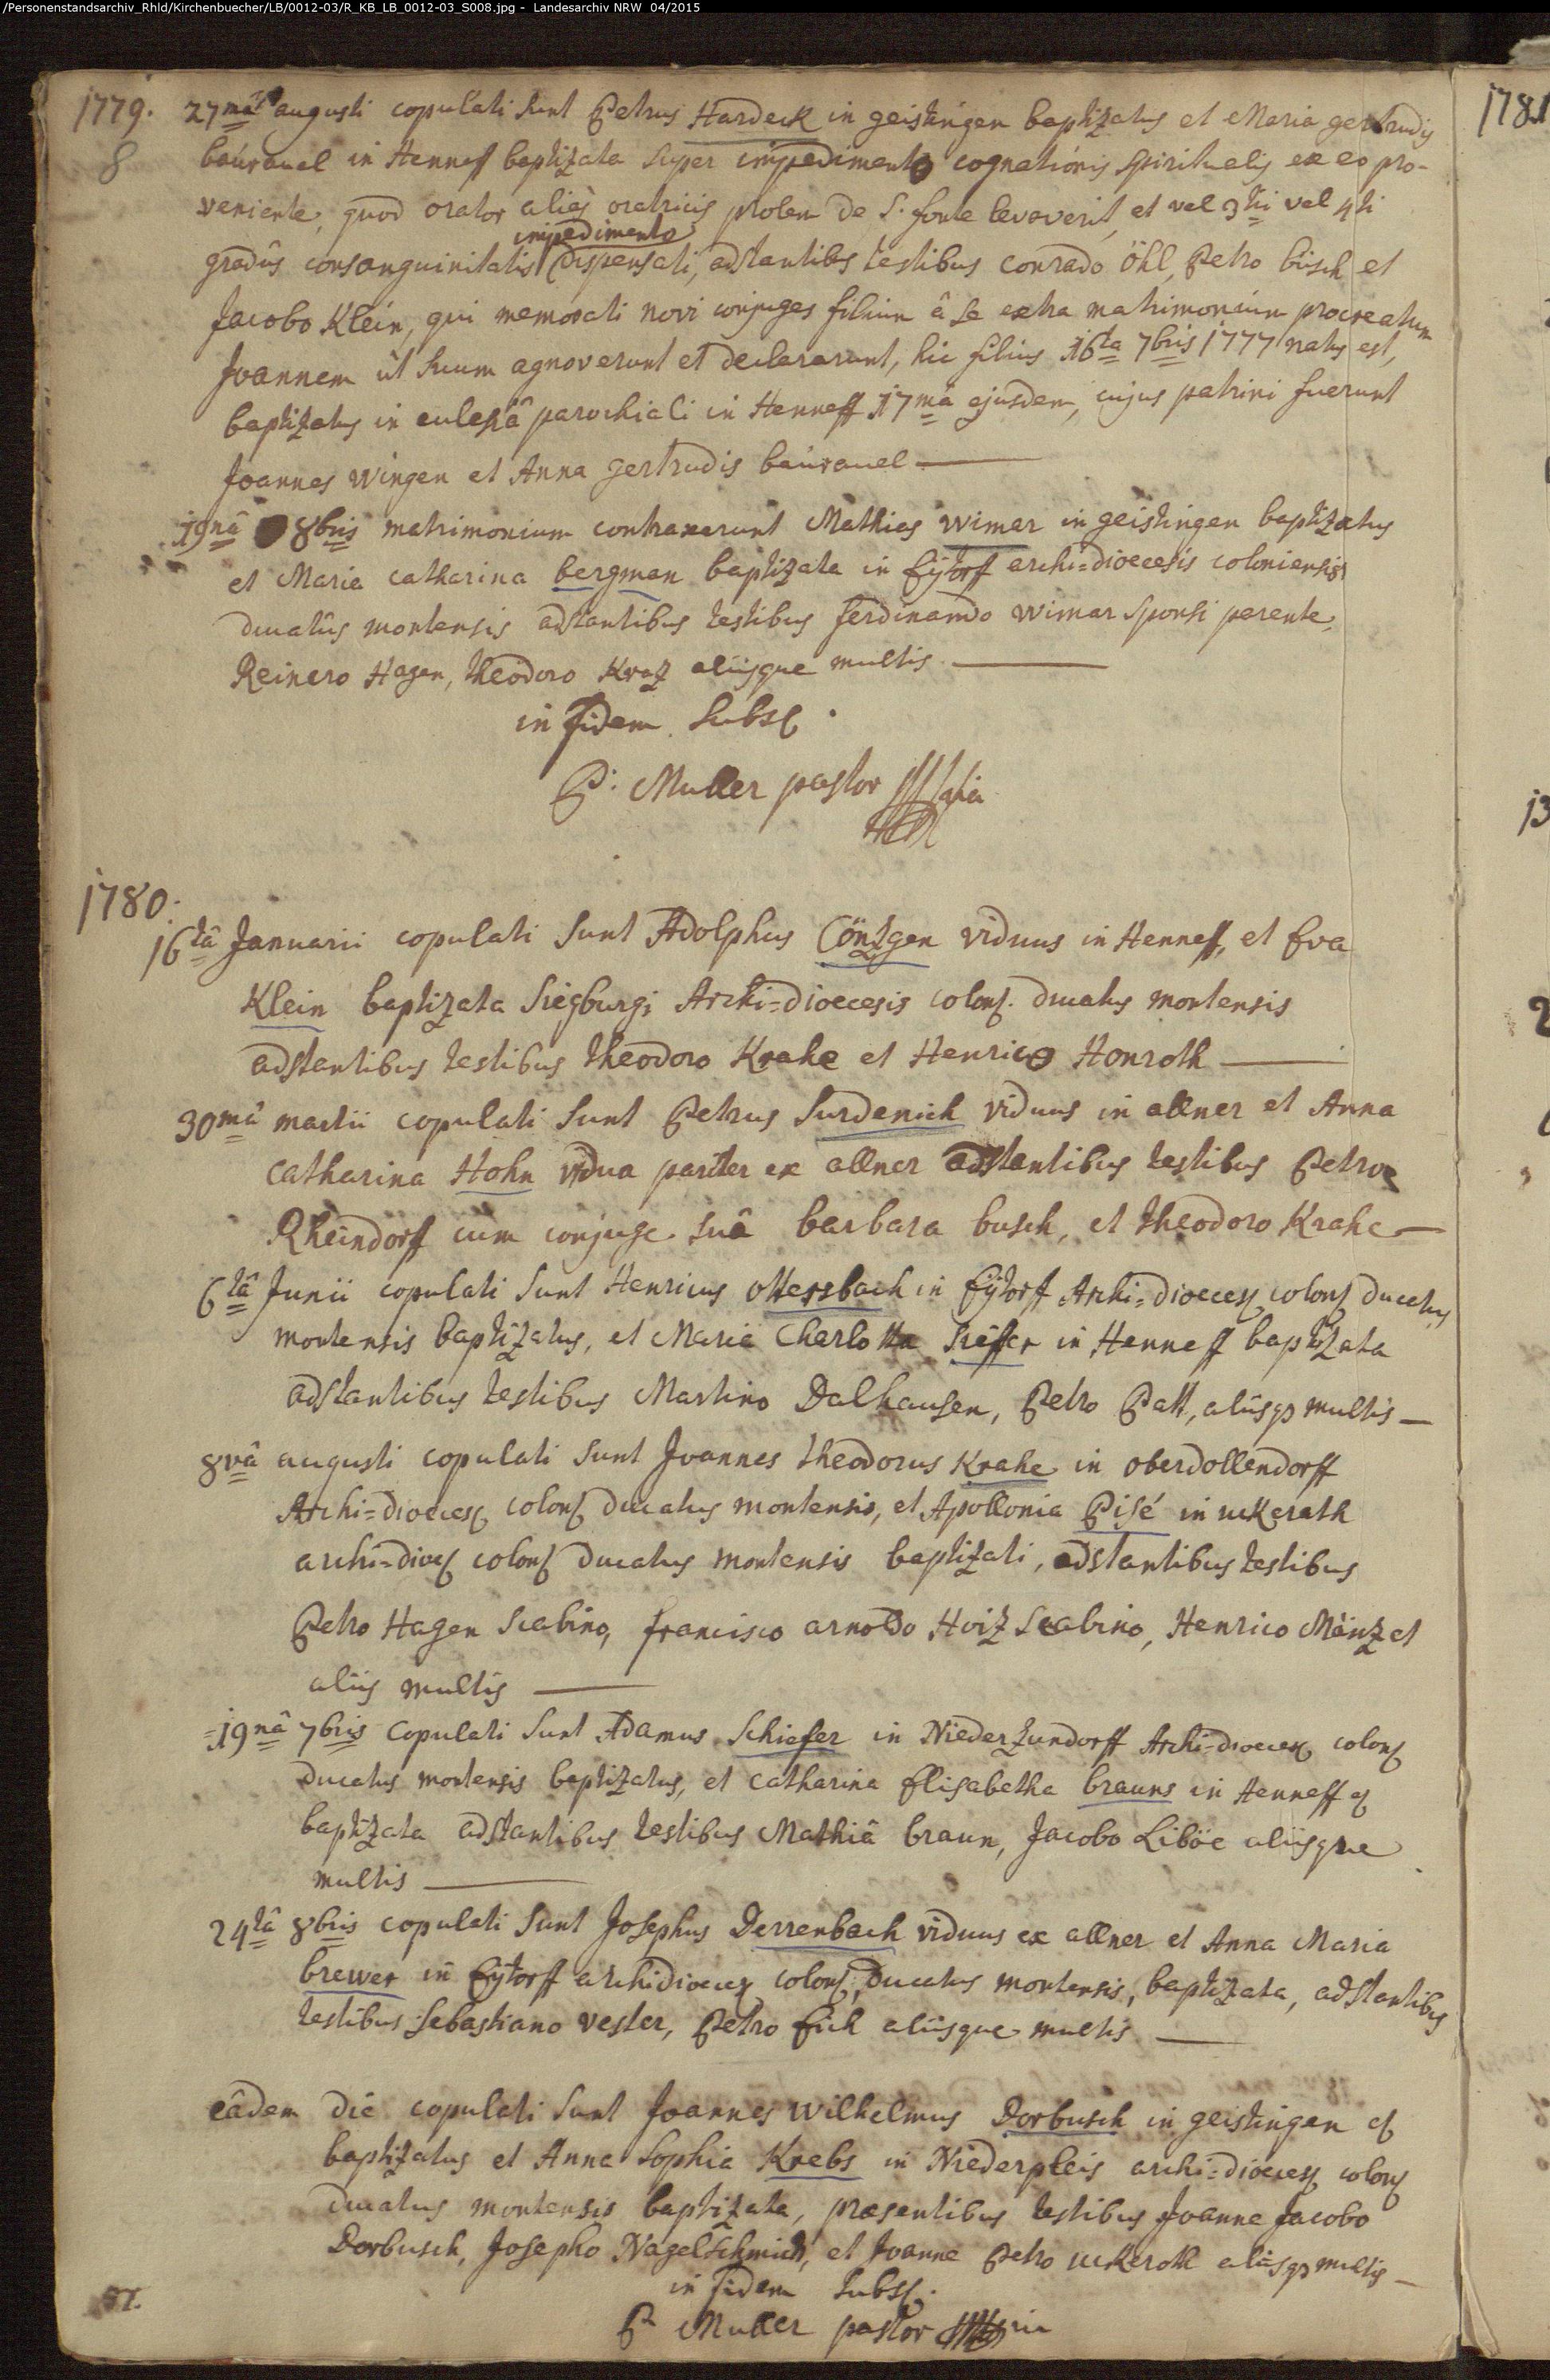 /Personenstandsarchiv_Rhld/Kirchenbuecher/LB/0012-03/R_KB_LB_0012-03_S008.jpg - Landesarchiv NRW 04/2015
1779. 27mâ augusti copulati sunt Petrus Hardeck in geistingen baptizatus et Maria gertrudis
8 baúravel in Henneff baptizata super impedimento cognationis spiritualis ex eo pro-
veniente, quod orator aliàs oratricis prolem de S. fonte levaverit, et vel 3tii vel 4ti
impedimento
gradûs consanguinitatis dispensati, adstantibus testibus conrado Öhl, Petro büsch et
Jacobo Klein, qui memorati novi conjuges filium â se extra matrimonium procreatum
Joannem út suum agnoverunt et declararunt, hic filius 16ta 7bris 1777 natus est,
baptizatus in eclesiâ parochiali in Henneff 17mâ ejusdem, cujus patrini fuerunt
Joannes wingen et Anna gertrudis baúravel
19nâ 8bris matrimonium contraxerunt Mathias wimar in geistingen baptizatus
et Maria catharina bergman baptizata in Eÿtorf archi=dioecesis coloniensis
ducatûs montensis adstantibus testibus ferdinando wimar sponsi parente,
Reinero Hagen, theodoro Kraz aliisque multis
in fidem subs
P. Muller pastor
1780.
16tâ Januarii copulati sunt Adolphus Cöntzgen viduus in Henneff, et Eva
Klein baptizata Siegburgi Archi=dioecesis colons. ducatus montensis
adstantibus testibus theodoro Krahe et Henrico Honroth
30mâ martii copulati sunt Petrus Surdenich viduus in allner et Anna
catharina Hohn vidua pariter ex allner adstantibus testibus Petro
Rheindorff cum conjuge suâ barbara busch, et theodoro Krahe
6tâ Junii copulati sunt Henricus ottersbach in Eÿtorf Archi=dioeces colons ducatus
montensis baptizatus, et Maria Charlotta Sieffer in Henneff baptizata
adstantibus testibus Martino Dalhausen, Petro Patt, aliisq multis
8vâ augusti copulati sunt Joannes theodorus Krahe in oberdollendorff
Archi=dioeces colons ducatus montensis, et Apollonia Pisé in uckerath
archi=dioes colons ducatus montensis baptizati, adstantibus testibus
Petro Hagen scabino, francisco arnoldo Hoiz scabino, Henrico Mänz et
aliis multis
19nâ 7bris copulati sunt Adamus Schiefer in Niederzundorff Archi=dioeces colons
ducatus montensis baptizatus, et catharina Elisabetha brauns in Henneff
baptizata adstantibus testibus Mathiâ braun, Jacobo Liböe aliisque
multis
24tâ 8bris copulati sunt Josephus Derrenbach viduus ex allner et Anna Maria
brewer in Eÿtorff archidioeces colons, ducatus montensis, baptizata, adstantibus
testibus Sebastiano vester, Petro Eich aliisque multis
eâdem die copulati sunt Joannes wilhelmus Dorbusch in geistingen
baptizatus et Anna Sophia Krebs in Niederpleis archi=dioeces colons
ducatus montensis baptizata, praesentibus testibus Joanne Jacobo
Dorbusch, Josepho Nagelschmidt, et Joanne Petro uckeroth aliisq multis
in fidem subs.
P Muller pastor
1781
13
2